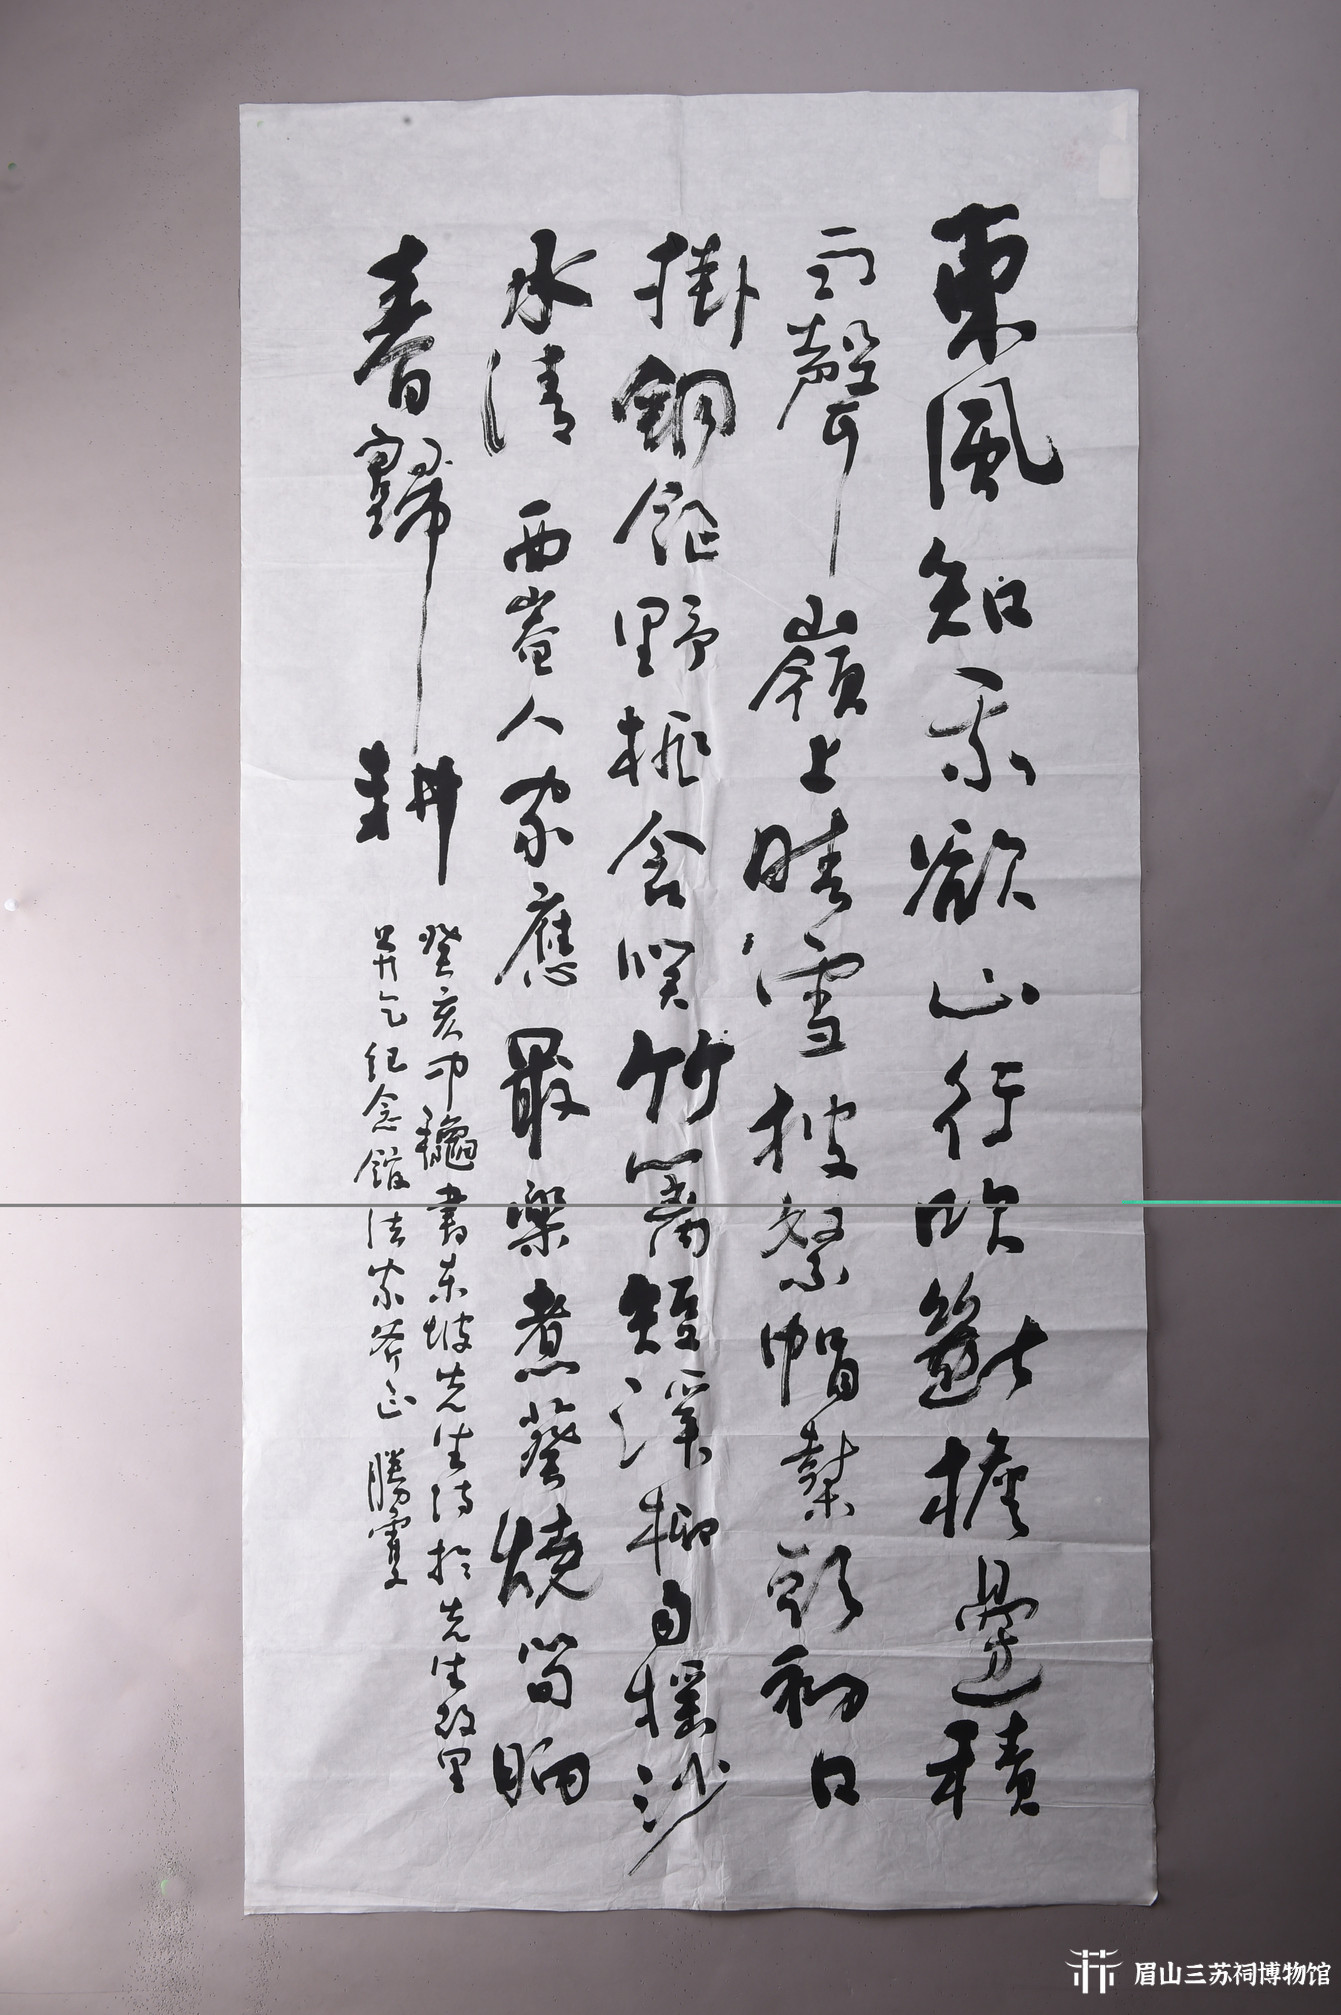 東風知我欲山行吹斷檐邊積
雨聲嶺上晴雪披絮帽樹頭初日
掛銅鉦野桃含笑竹籬短溪柳自搖沙
水清西崦人家應最樂煮葵燒筍餉
春歸耕
癸亥中穐書東坡先生詩於先生故里
并乞紀念館法家斧正
眉山三苏祠博物馆